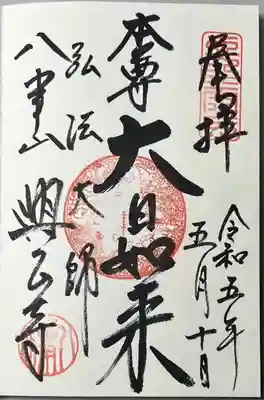 奉拝
令和五年
五月十日
本尊
大日如来
弘法大師
八事山 興正寺